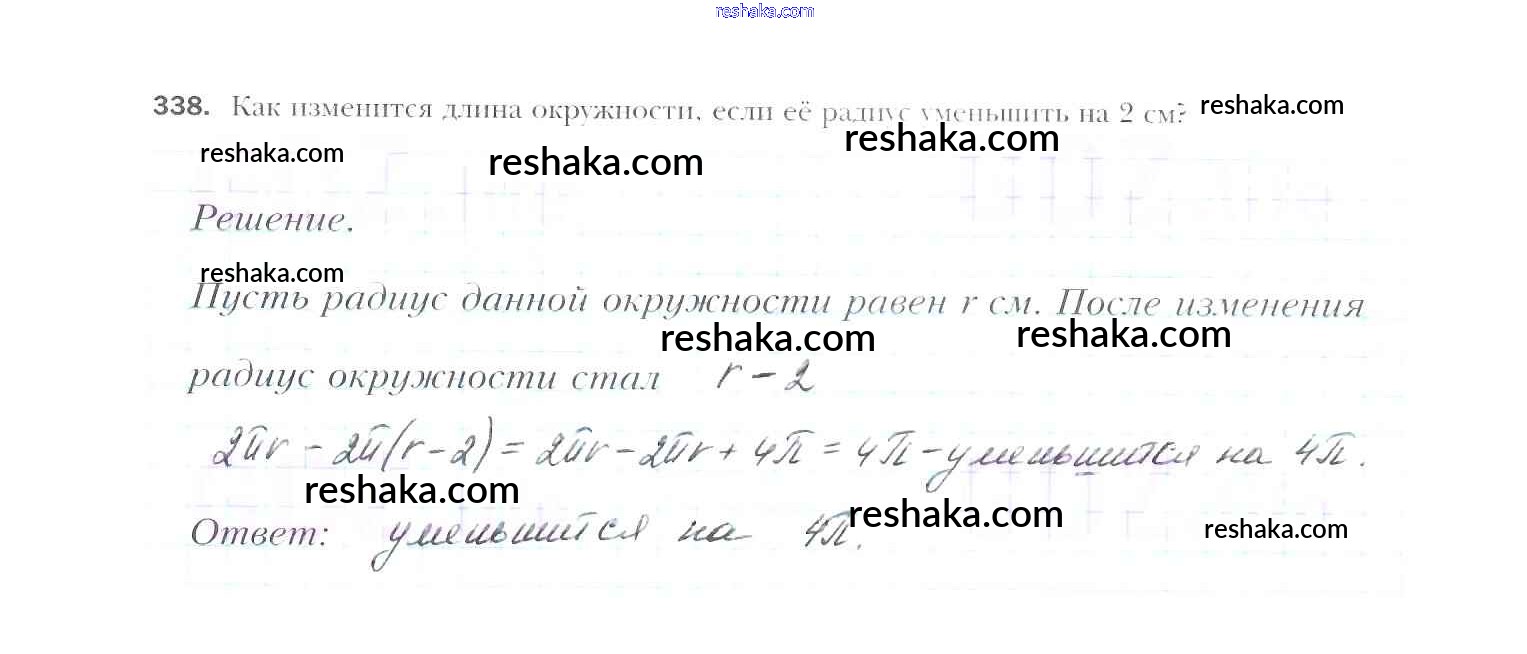 reshaka.com
338. Как изменится длина окружности, если её радиус уменьшить на 2 см? reshaka.com
reshaka.com reshaka.com reshaka.com
Решение.
reshaka.com
Пусть радиус данной окружности равен r см. После изменения
reshaka.com reshaka.com
радиус окружности стал r - 2
2πr - 2π(r - 2) = 2πr - 2πr + 4π = 4π - уменьшится на 4π.
reshaka.com reshaka.com
Ответ: уменьшится на 4π. reshaka.com